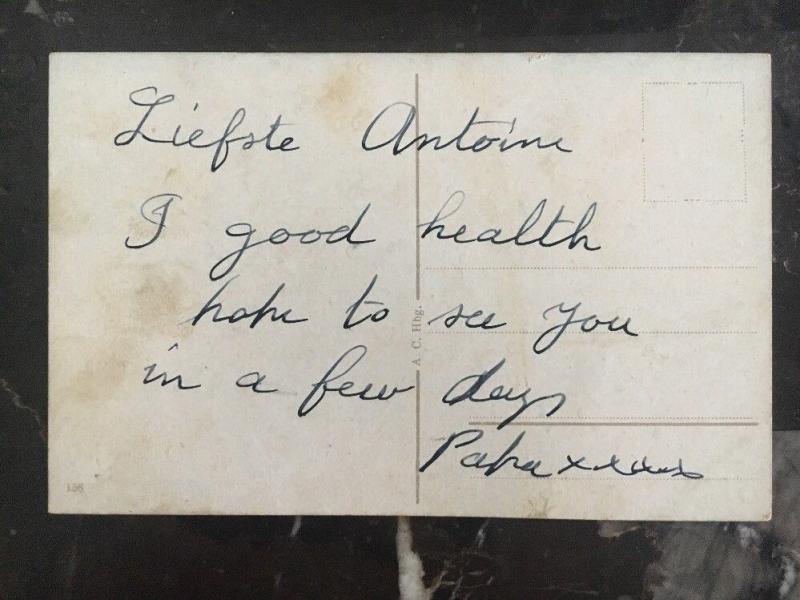 Liefste Antoine
I good health
hope to see you
in a few days
Papa xxxxx
A. C. Hbg.
156